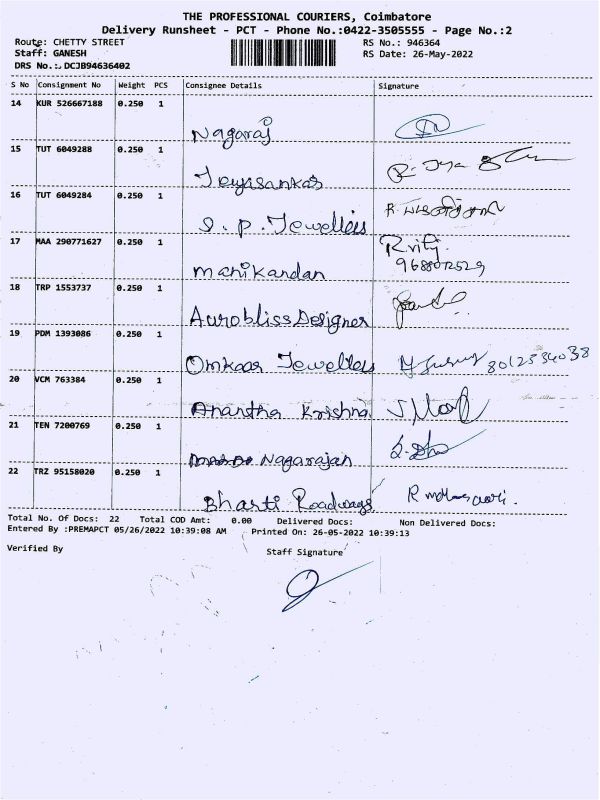 THE PROFESSIONAL COURIERS, Coimbatore
Delivery Runsheet - PCT - Phone No.:0422-3505555 - Page No.:2
Route: CHETTY STREET RS No.: 946364
Staff: GANESH RS Date: 26-May-2022
DRS No.: DCJB94636402
S No Consignment No Weight PCS Consignee Details Signature
14 KUR 526667188 0.250 1
Nagaraj
15 TUT 6049288 0.250 1
Jeyasankar
16 TUT 6049284 0.250 1
S. P. Jewellers
17 MAA 290771627 0.250 1
Manikandan 9688072529
18 TRP 1553737 0.250 1
Aurobliss Designer
19 PDM 1393086 0.250 1
Omkaar Jewellers 8012534038
20 VCM 763384 0.250 1
Anantha Krishna
21 TEN 7200769 0.250 1
Nagarajan
22 TRZ 95158020 0.250 1
Bharti Roadways
Total No. Of Docs: 22 Total COD Amt: 0.00 Delivered Docs: Non Delivered Docs:
Entered By :PREMAPCT 05/26/2022 10:39:08 AM Printed On: 26-05-2022 10:39:13
Verified By Staff Signature